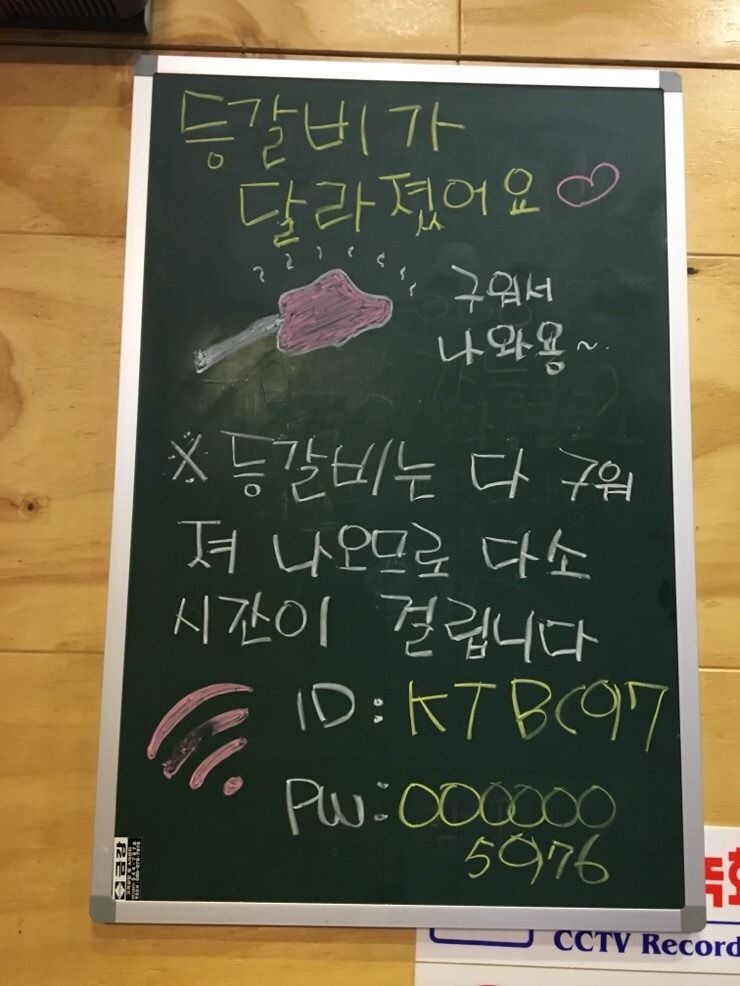 등갈비가
달라졌어요
구워서
나와용~
※ 등갈비는 다 구워
져 나오므로 다소
시간이 걸립니다
ID: KTBC97
PW: 000000
5976
CCTV Record